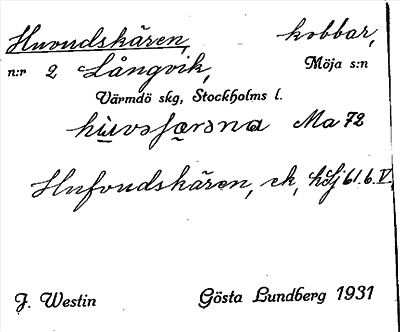 Huvudskären, kobbar,
n:r 2 Långvik, Möja s:n
Värmdö skg, Stockholms l.
Ma 72
Hufvudskären, ek, 61.6.V.
J. Westin Gösta Lundberg 1931